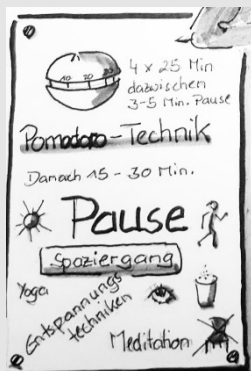 10 20 30
4 x 25 Min
dazwischen
3-5 Min. Pause
Pomodoro-Technik
Danach 15 - 30 Min.
Pause
Spaziergang
Yoga
Entspannungs
techniken
Meditation